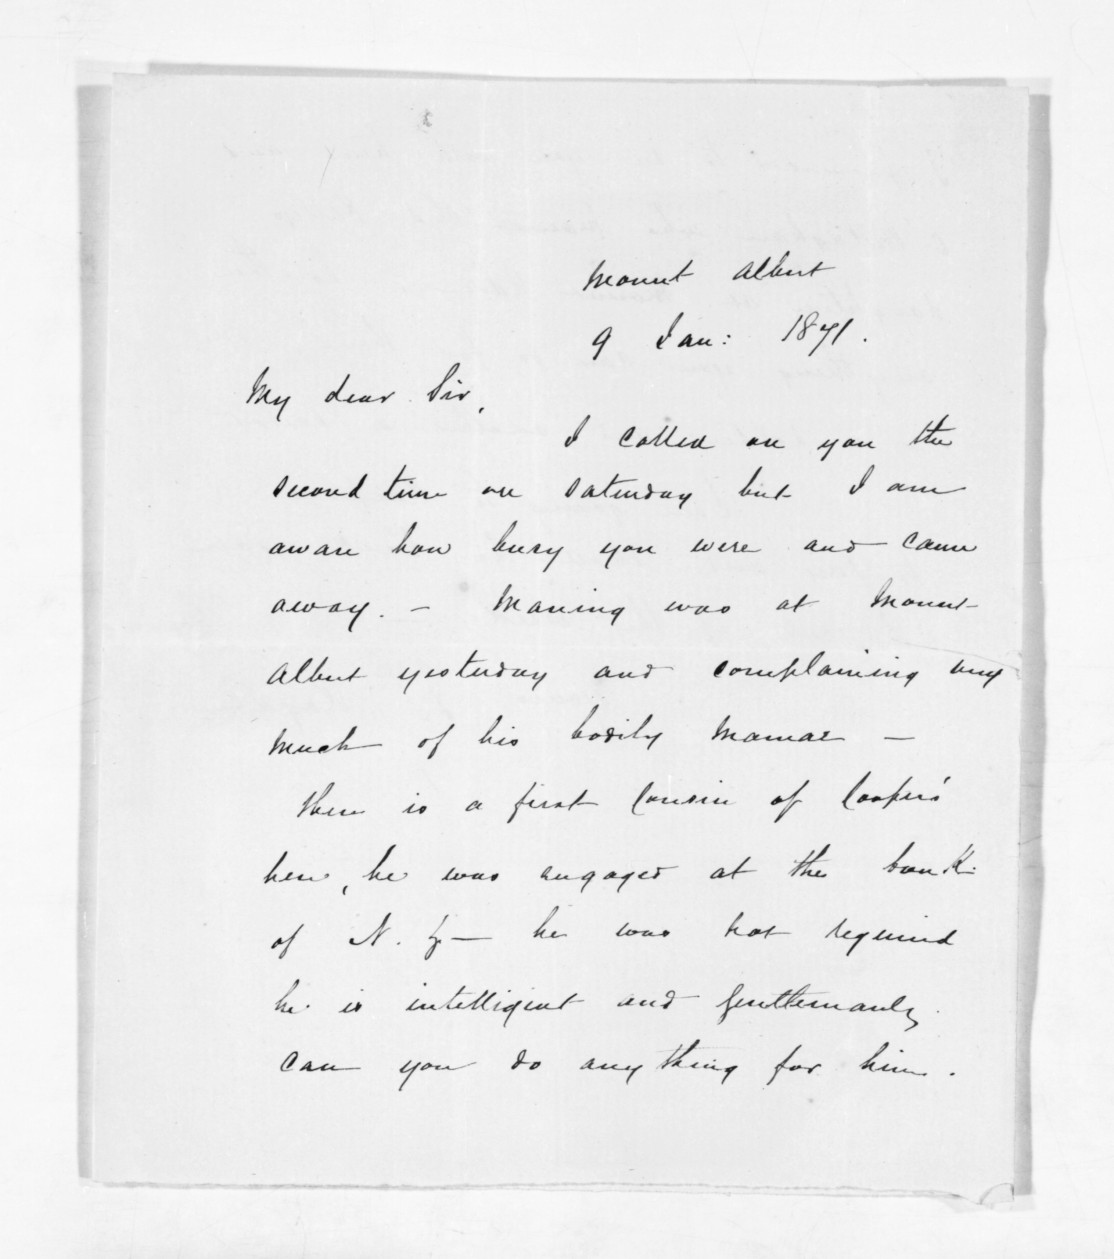 Mount Albert
9 Jan: 1871.
My dear Sir,
I called on you the
second time on Saturday but I am
aware how busy you were and came
away. - Maning was at Mount
Albert yesterday and complaining very
much of his bodily mamae -
There is a first Cousin of Cooper's
here, he was engaged at the bank
of N. Z - he was not required
he is intelligent and gentlemanly.
Can you do anything for him.